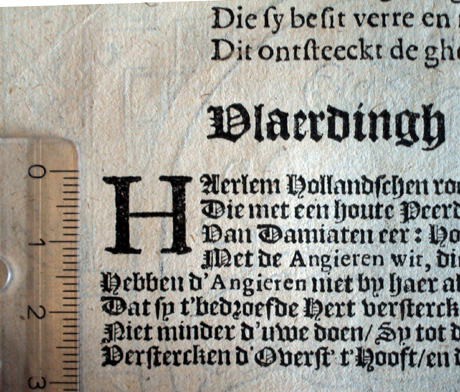 Die ſy beſit verre en
Dit ontſteeckt de ghe
Vlaerdingh
HAerlem Hollandſchen
Die met een houte Peerd
Van Damiaten eer: Ho
Met de Angieren wir, di
Hebben d'Angieren met by haer a
Dat ſy t'bedroefde Hert verſterck
Niet minder d'uwe doen/ Sy tot d
Verſtercken d'Overſt' t'Hooft/ en d
0
1
2
3